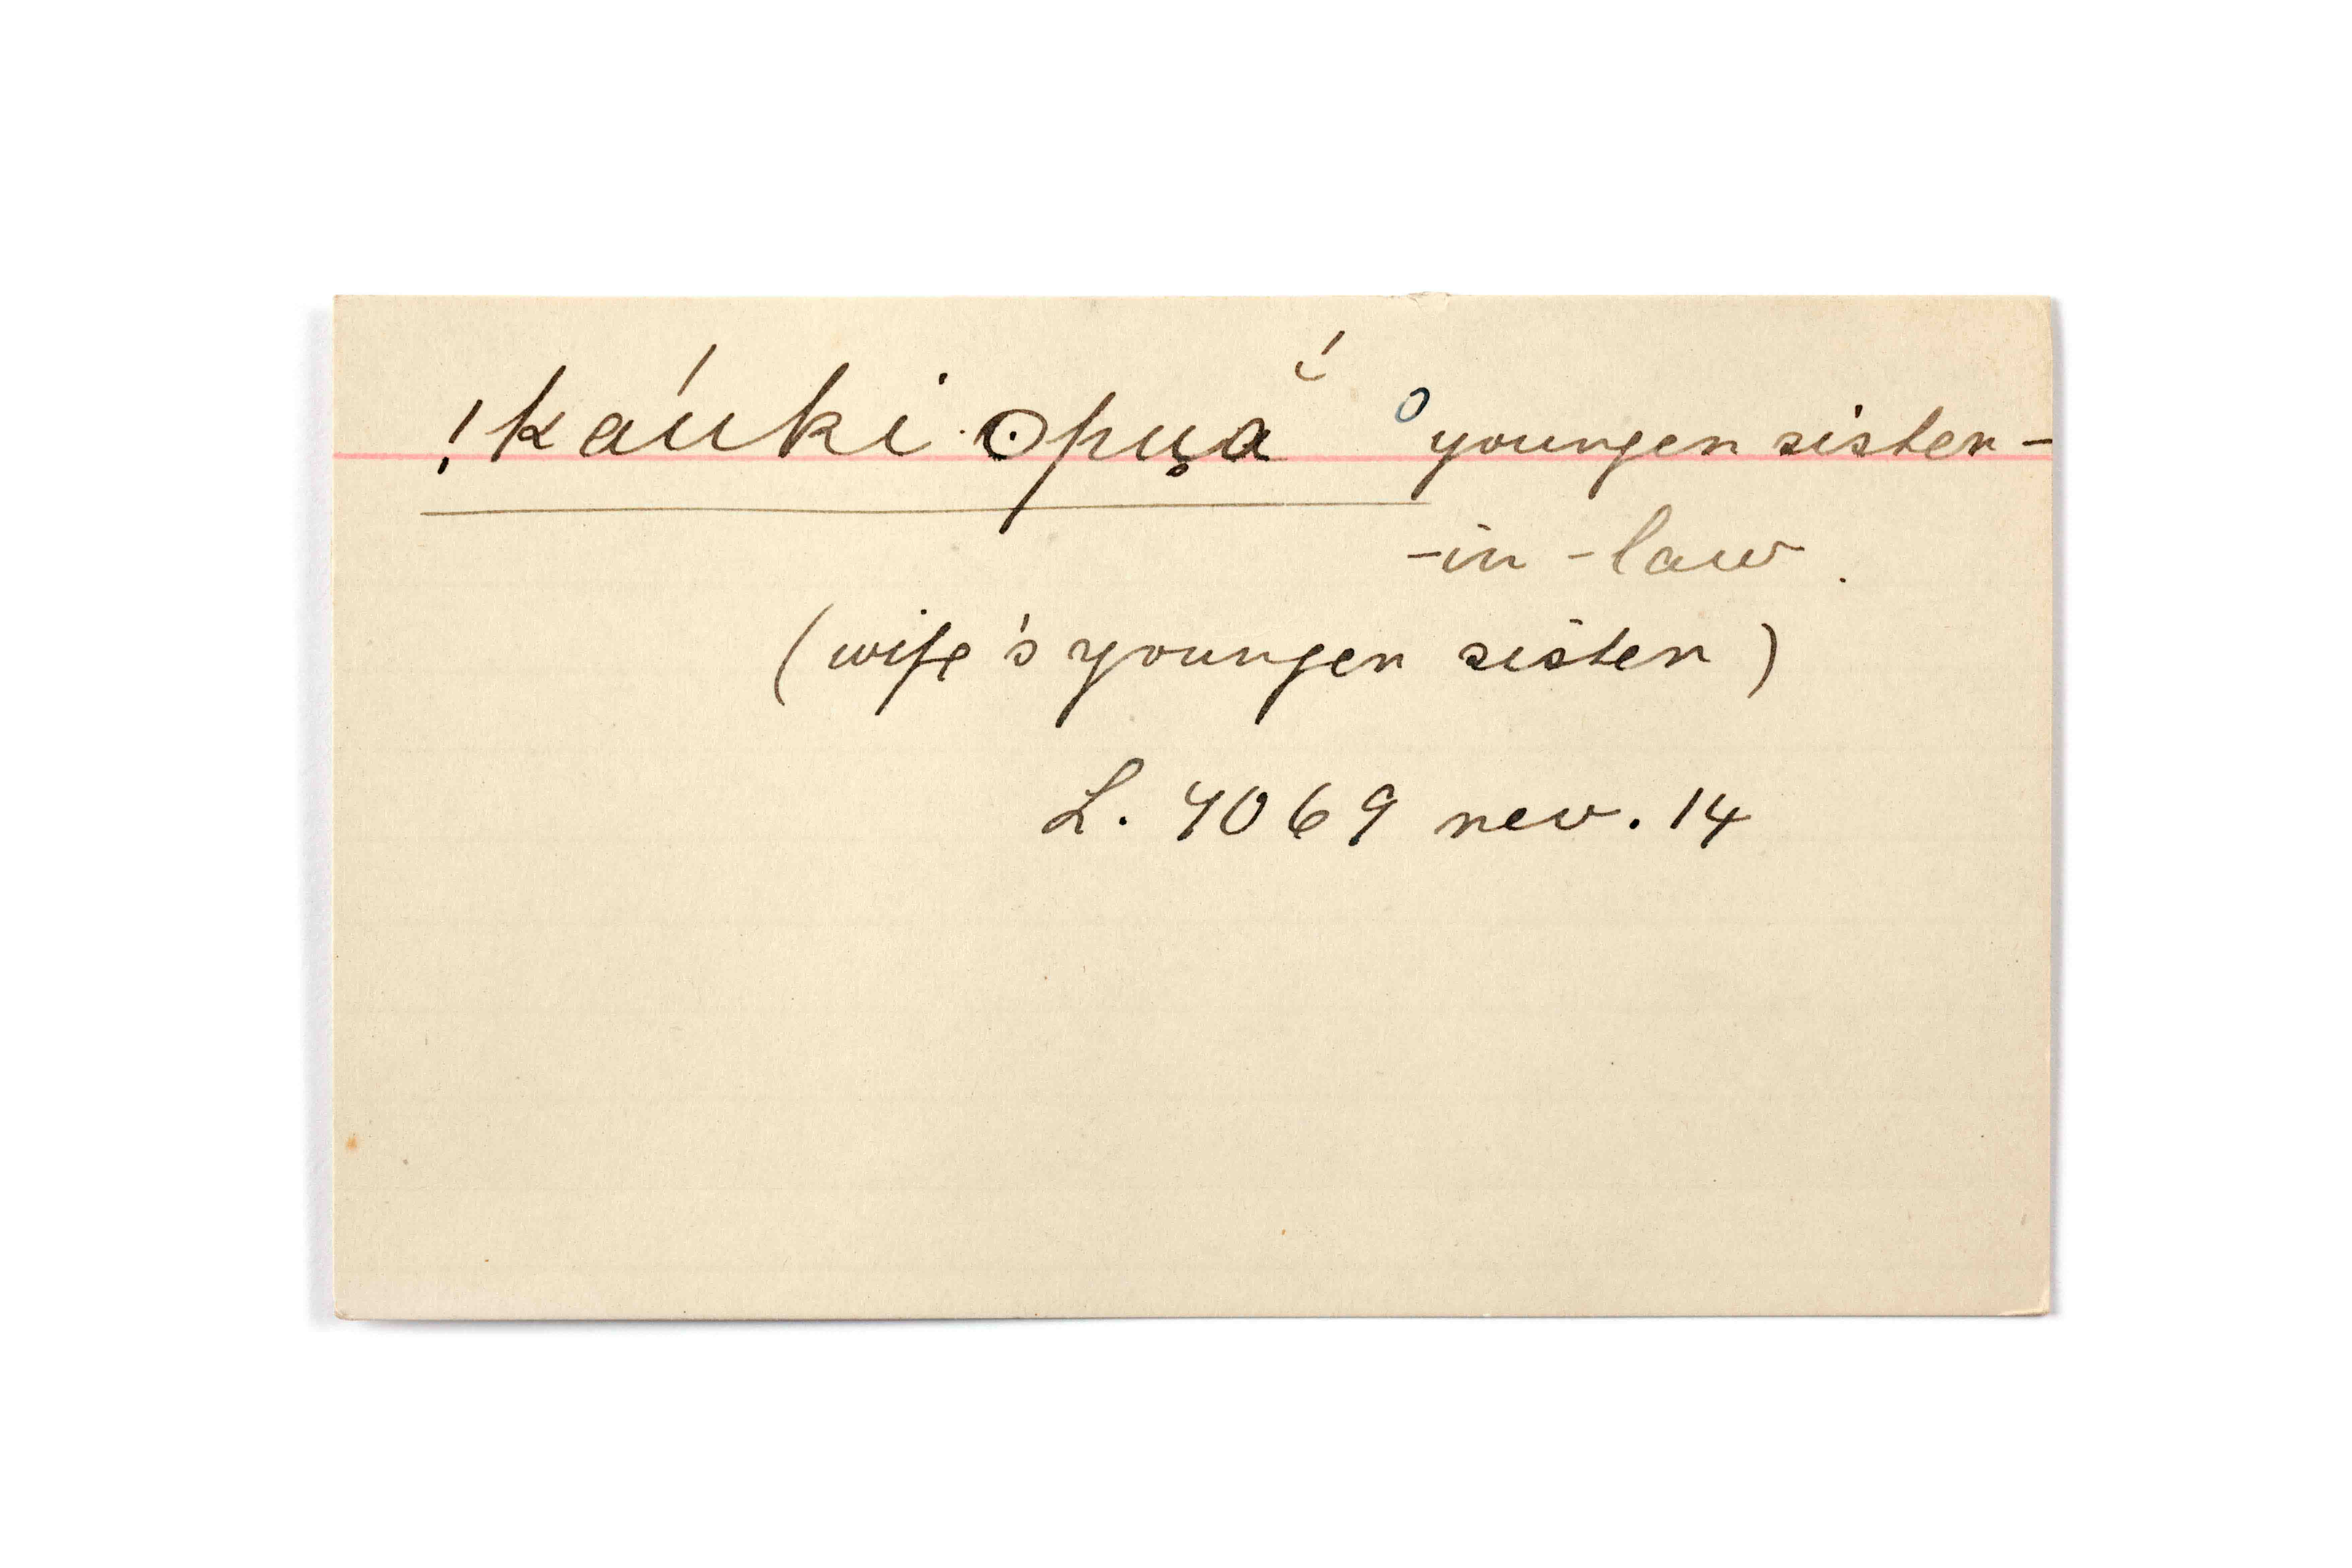 !kaúki ʘpu̥ắ o younger sister-
-in-law.
(wife's younger sister)
L. 7069 rev. 14